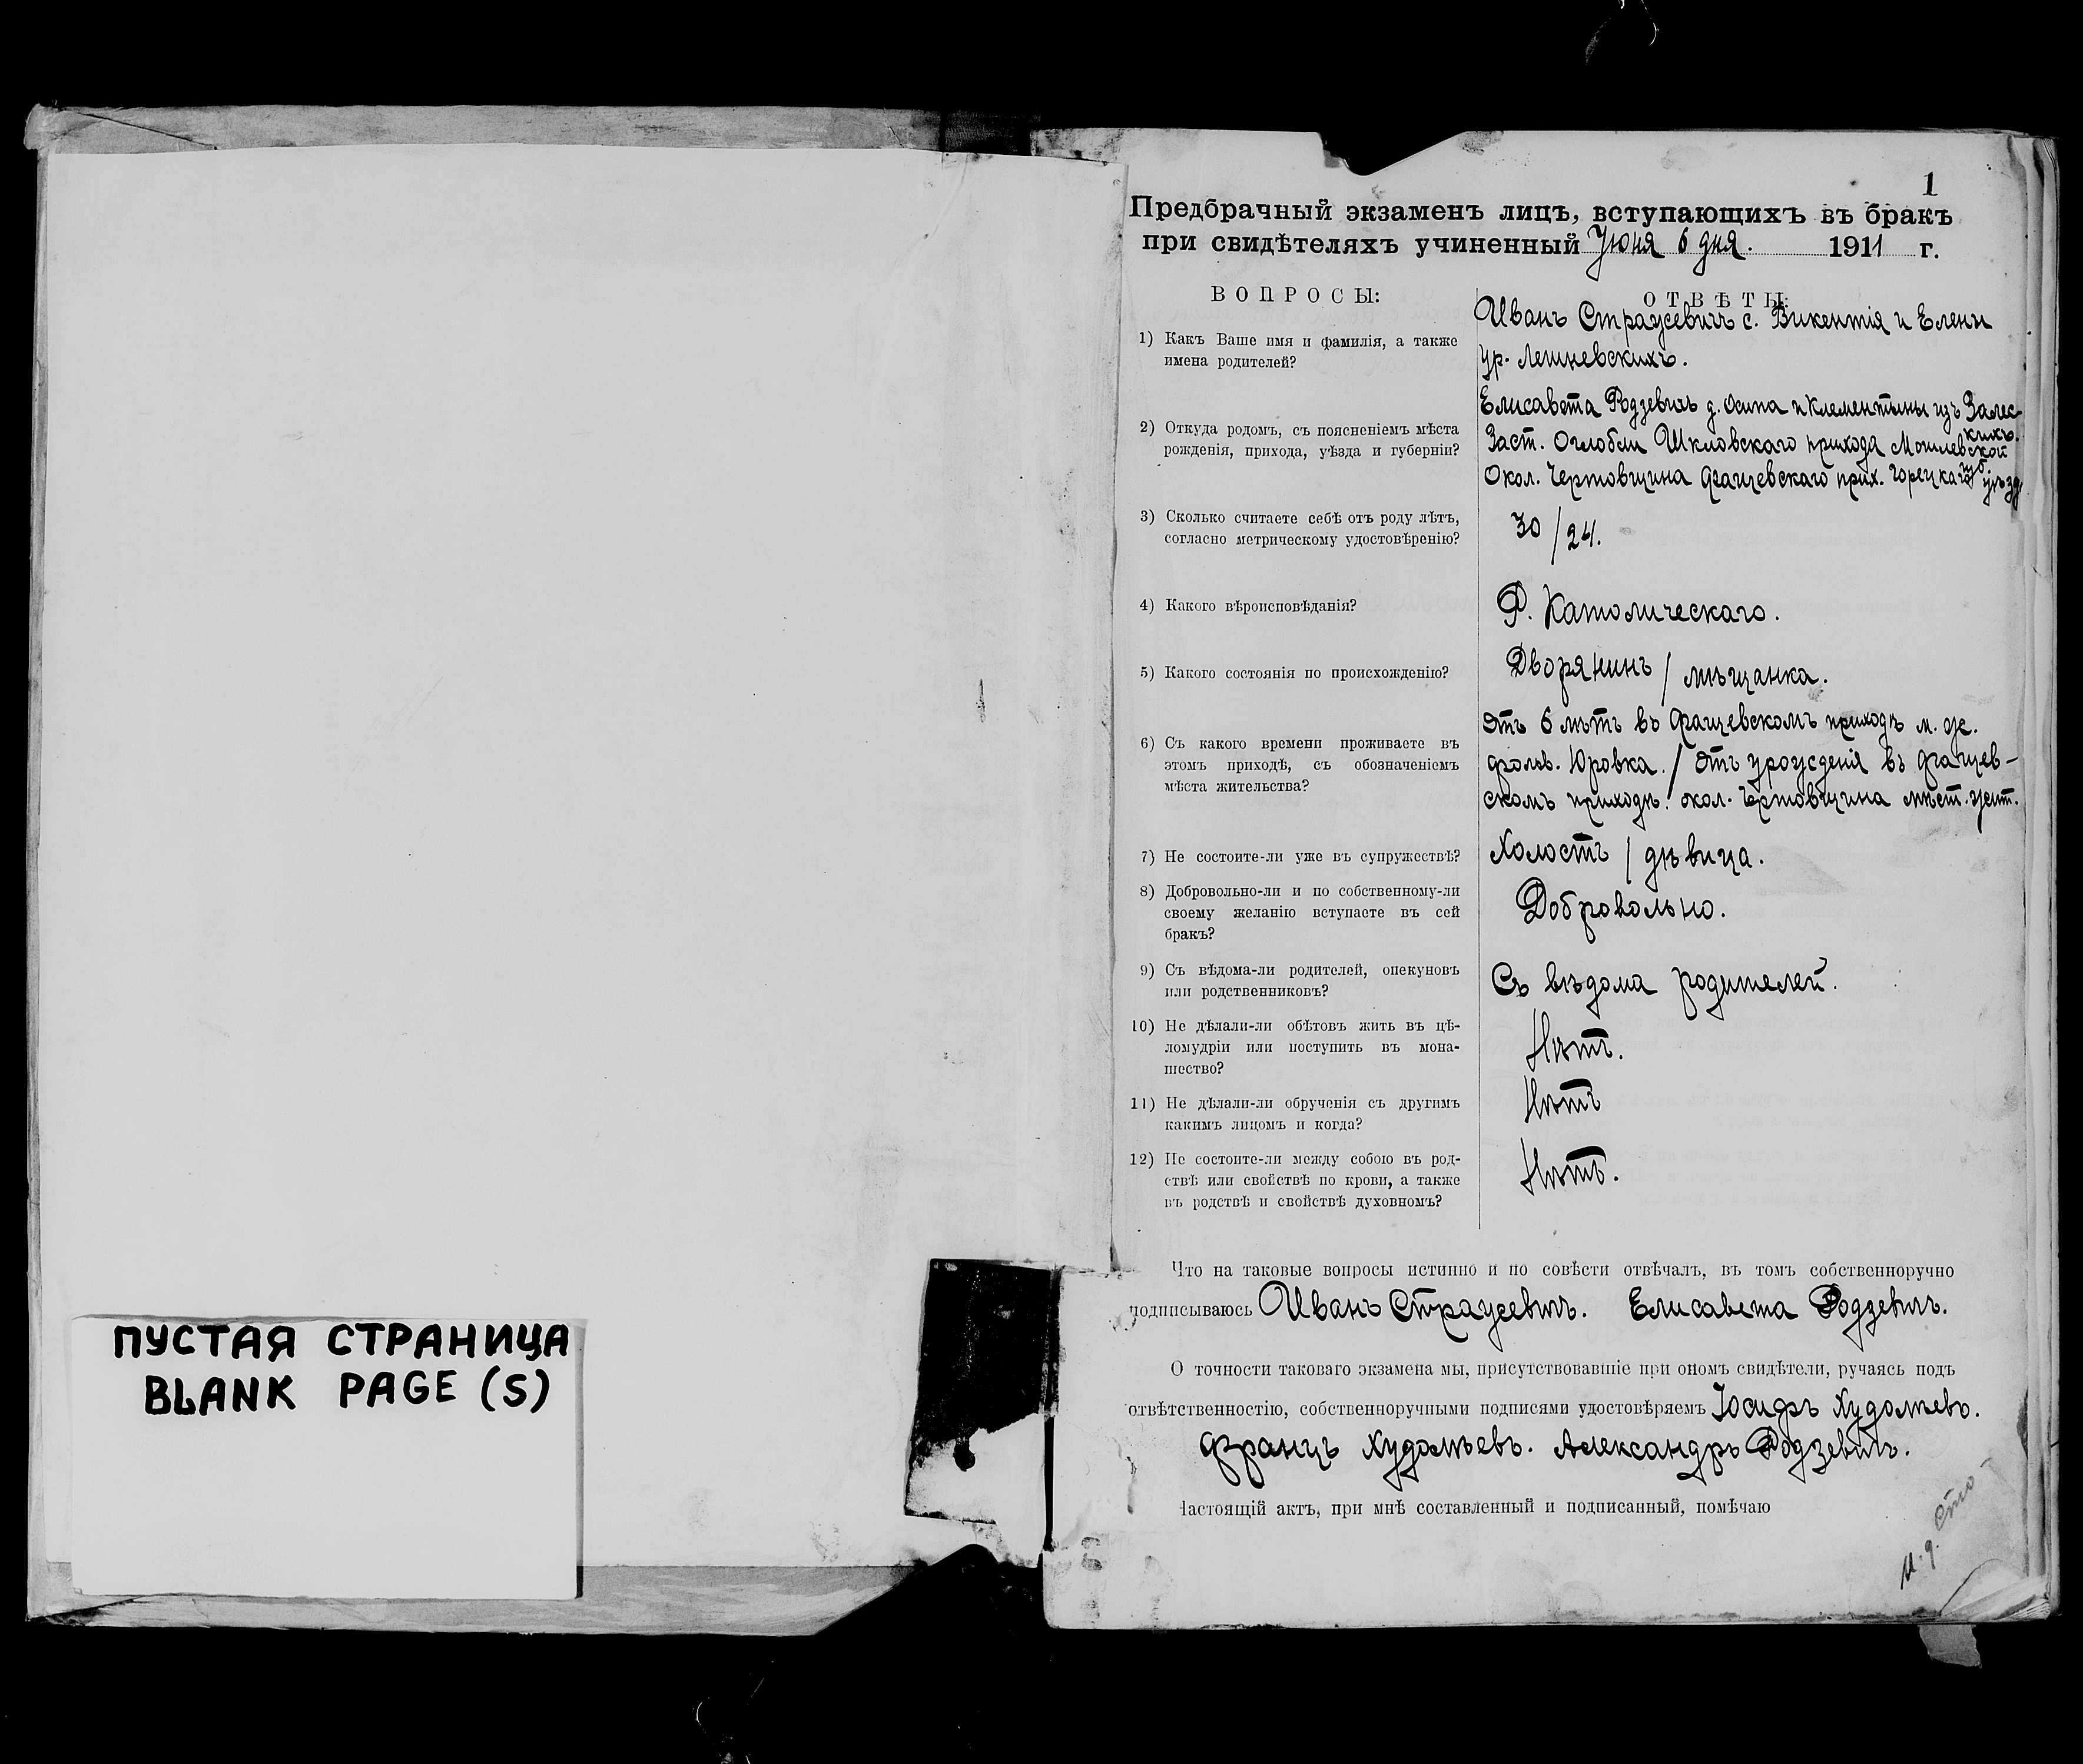 ПУСТАЯ СТРАНИЦА
BLANK PAGE (S)
1
Предбрачный экзаменъ лицъ, вступающихъ въ бракъ
при свидѣтеляхъ учиненный Іюня 6 дня. 1911 г.
ВОПРОСЫ:
ОТВѢТЫ:
1) Какъ Ваше имя и фамилія, а также
имена родителей?
Иванъ Страусевичъ с. Викентія и Елены
ур. Лешневскихъ.
Елисавета Родзевичъ д. Осипа и Клементины изъ Залес-
кихъ.
2) Откуда родомъ, съ поясненіемъ мѣста
рожденія, прихода, уѣзда и губерніи?
Заст. Оглобли Шкловскаго прихода Могилевской
губ.
Окол. Чертовщина Фащевскаго прих. Горецкаго уѣзд.
3) Сколько считаете себѣ отъ роду лѣтъ,
согласно метрическому удостовѣренію?
30 / 24.
4) Какого вѣроисповѣданія?
Р. Католическаго.
5) Какого состоянія по происхожденію?
Дворянинъ / мѣщанка.
6) Съ какого времени проживаете въ
этомъ приходѣ, съ обозначеніемъ
мѣста жительства?
Отъ 6 лѣтъ въ Фащевскомъ приходѣ м. ж.
фольв. Юровка. / Отъ урожденія въ Фащев-
скомъ приходѣ. окол. Чертовщина мѣст. жит.
7) Не состоите-ли уже въ супружествѣ?
Холостъ / дѣвица.
8) Добровольно-ли и по собственному-ли
своему желанію вступаете въ сей
бракъ?
Добровольно.
9) Съ вѣдома-ли родителей, опекуновъ
или родственниковъ?
Съ вѣдома родителей.
10) Не дѣлали-ли обѣтовъ жить въ цѣ-
ломудріи или поступить въ мона-
шество?
Нѣтъ.
11) Не дѣлали-ли обрученія съ другимъ
какимъ лицомъ и когда?
Нѣтъ
12) Не состоите-ли между собою въ род-
ствѣ или свойствѣ по крови, а также
въ родствѣ и свойствѣ духовномъ?
Нѣтъ.
Что на таковые вопросы истинно и по совѣсти отвѣчалъ, въ томъ собственноручно
подписываюсь Иванъ Страусевичъ. Елисавета Родзевичъ.
О точности таковаго экзамена мы, присутствовавшіе при ономъ свидѣтели, ручаясь подъ
отвѣтственностію, собственноручными подписями удостовѣряемъ Іосифъ Худолѣевъ.
Францъ Худолѣевъ. Александръ Родзевичъ.
Настоящій актъ, при мнѣ составленный и подписанный, помѣчаю
И. д.